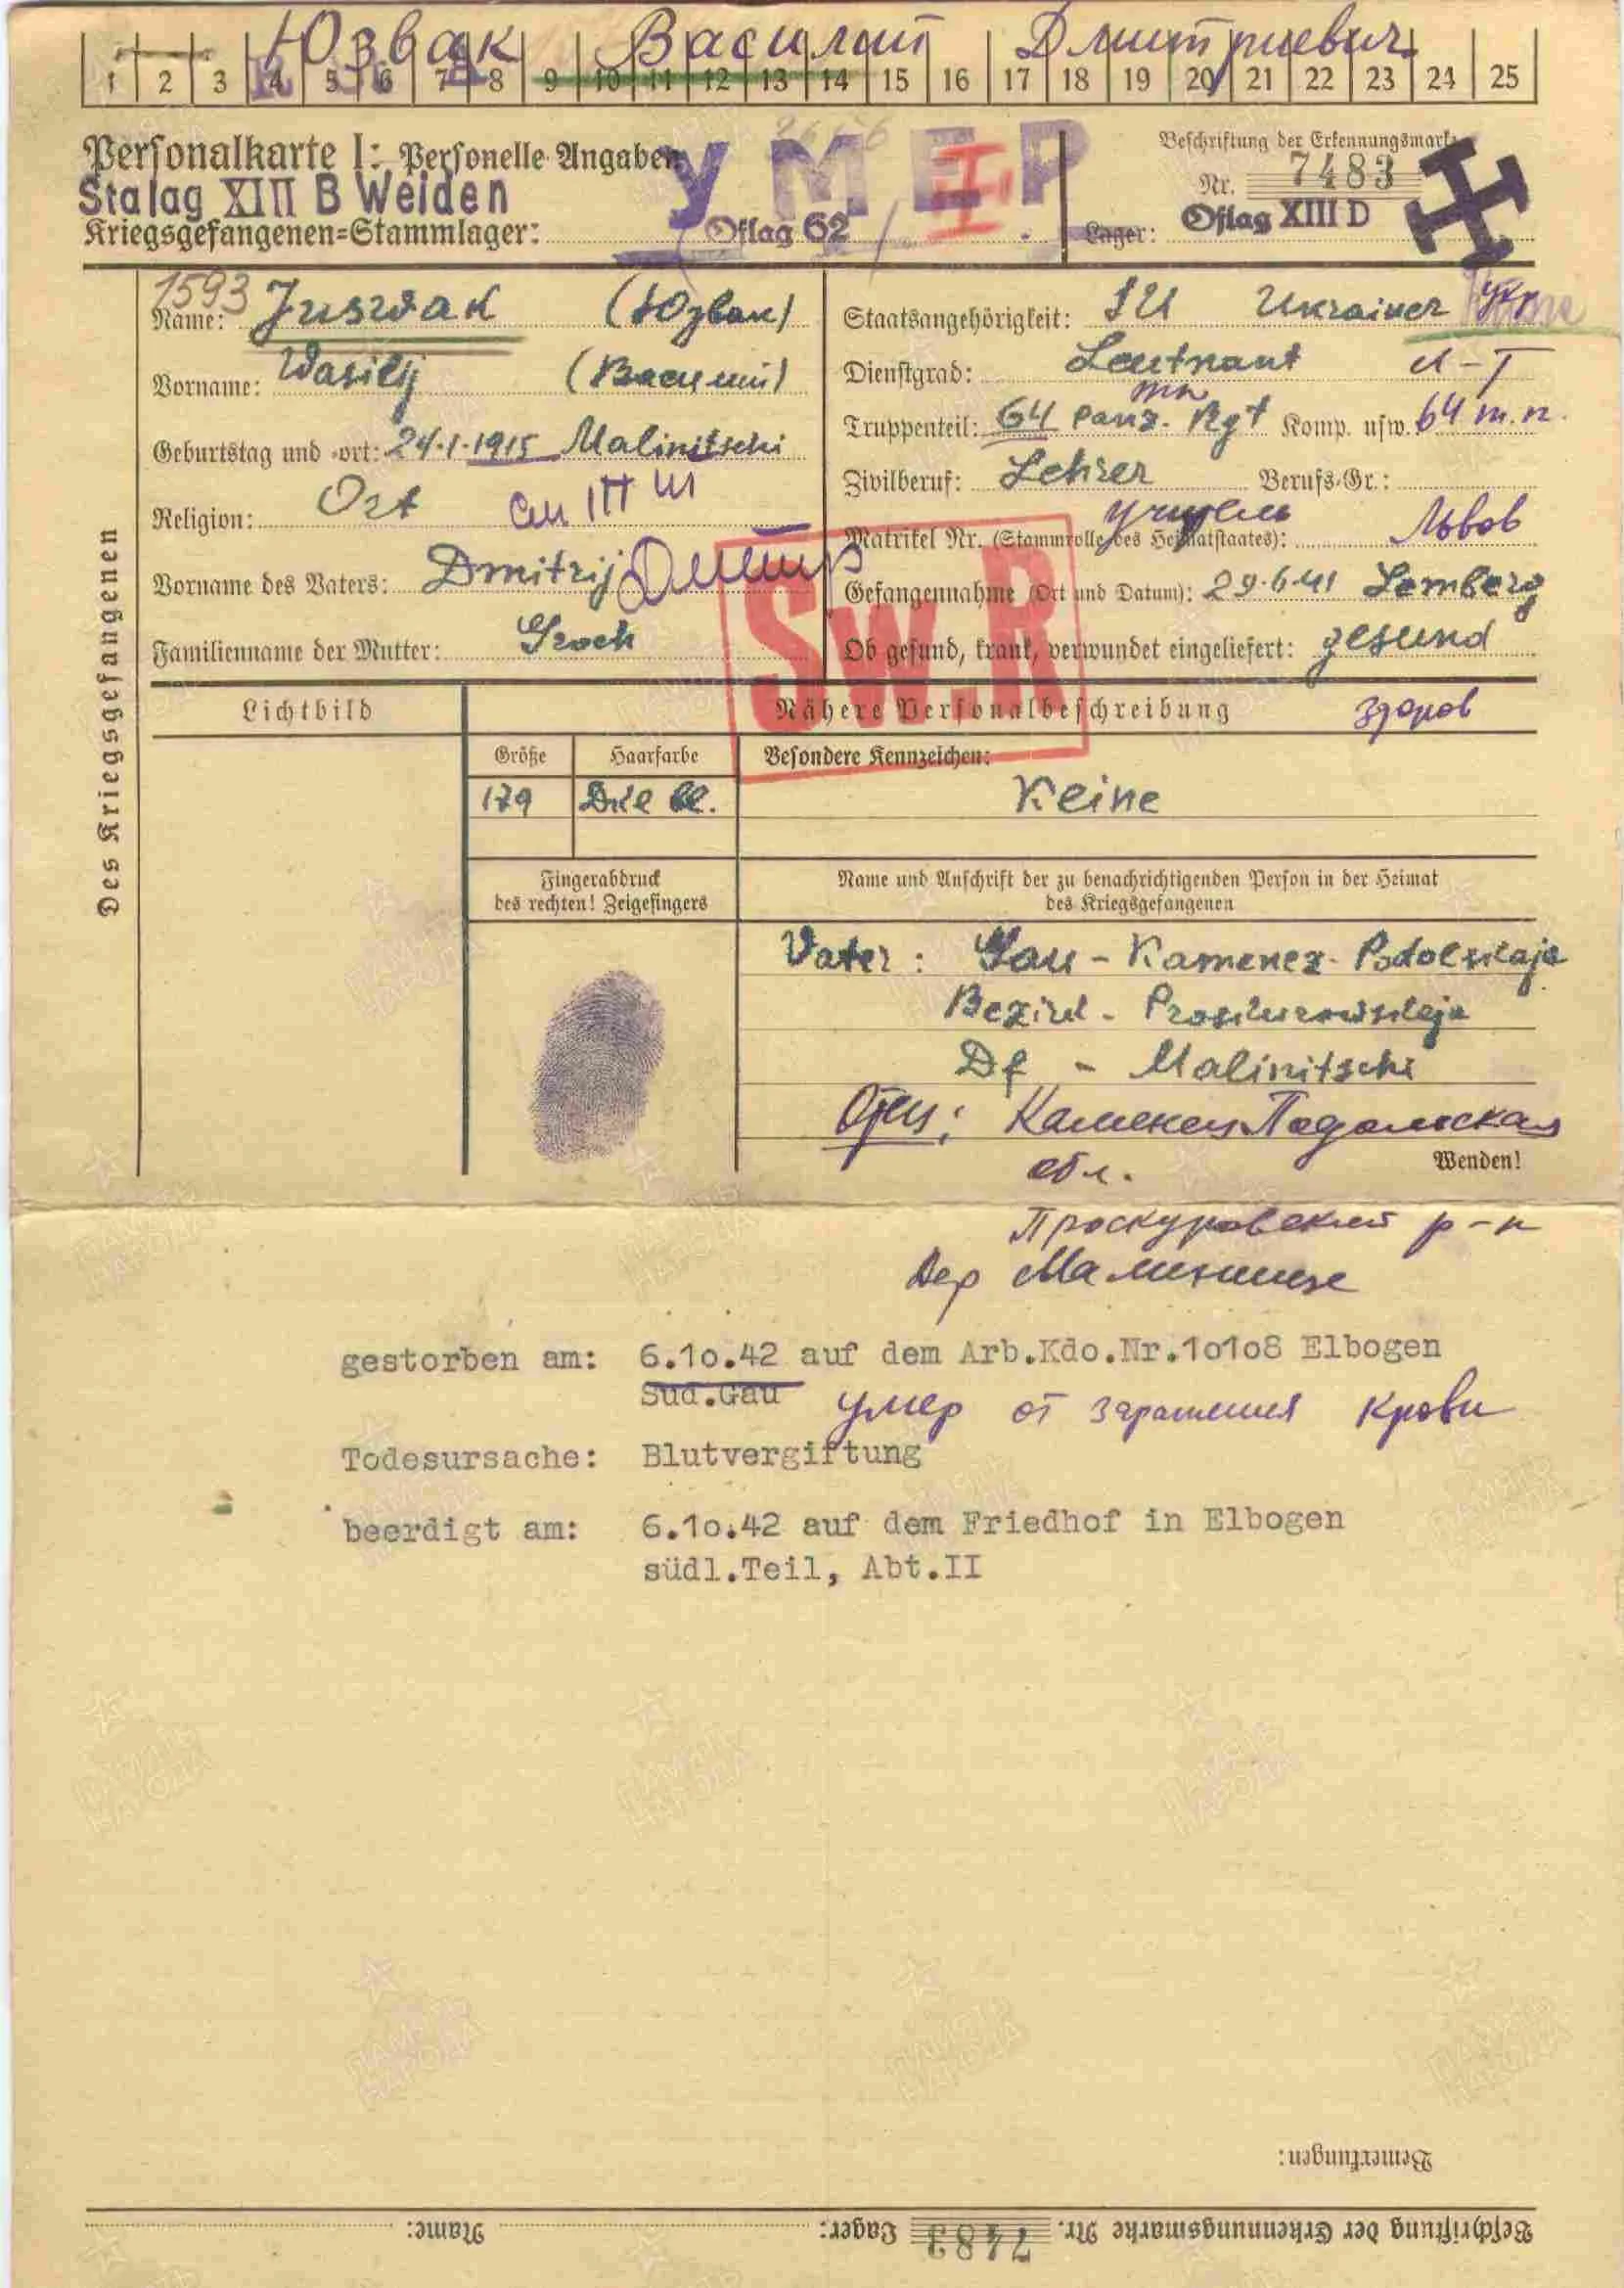 Юзвак Василий Дмитриевич
1 2 3 4 5 6 7 8 9 10 11 12 13 14 15 16 17 18 19 20 21 22 23 24 25
Personalkarte I: Personelle Angaben
УМЕР
Beschriftung der Erkennungsmarke
Stalag XIII B Weiden
Nr. 7483
Kriegsgefangenen-Stammlager: Oflag 62
Lager: Oflag XIII D
Des Kriegsgefangenen
1593
Name: Juszwak (Юзвак)
Vorname: Wasilij (Василий)
Geburtstag und -ort: 24.1.1915 Malinitschi
Religion: Ort
Vorname des Vaters: Dmitrij
Familienname der Mutter: Groch
Staatsangehörigkeit: SU Ukrainer Укр
Dienstgrad: Leutnant л-т
Truppenteil: 64 Panz. Rgt Komp. usw. 64 т.п.
Zivilberuf: Lehrer Berufs-Gr.:
Matrikel Nr. (Stammrolle des Heimatstaates): Львов
Gefangennahme (Ort und Datum): 29.6.41 Lemberg
Ob gesund, krank, verwundet eingeliefert: gesund
здоров
Sw.R
Lichtbild
Nähere Personalbeschreibung
Größe Haarfarbe Besondere Kennzeichen:
179 Keine
Fingerabdruck
des rechten! Zeigefingers
Name und Anschrift der zu benachrichtigenden Person in der Heimat
des Kriegsgefangenen
Vater: Gau - Kamenez-Podolskaja
Bezirk - Proskurowskaja
Df - Malinitschi
Отец: Каменец Подольская
обл.
Wenden!
Проскуровский р-н
Дер Малиничи
gestorben am: 6.10.42 auf dem Arb.Kdo.Nr.10108 Elbogen
Sud.Gau
умер от заражения крови
Todesursache: Blutvergiftung
beerdigt am: 6.10.42 auf dem Friedhof in Elbogen
südl.Teil, Abt.II
Bemerkungen:
Beschriftung der Erkennungsmarke Nr. 7483 Lager: Name:
ПАМЯТЬ НАРОДА